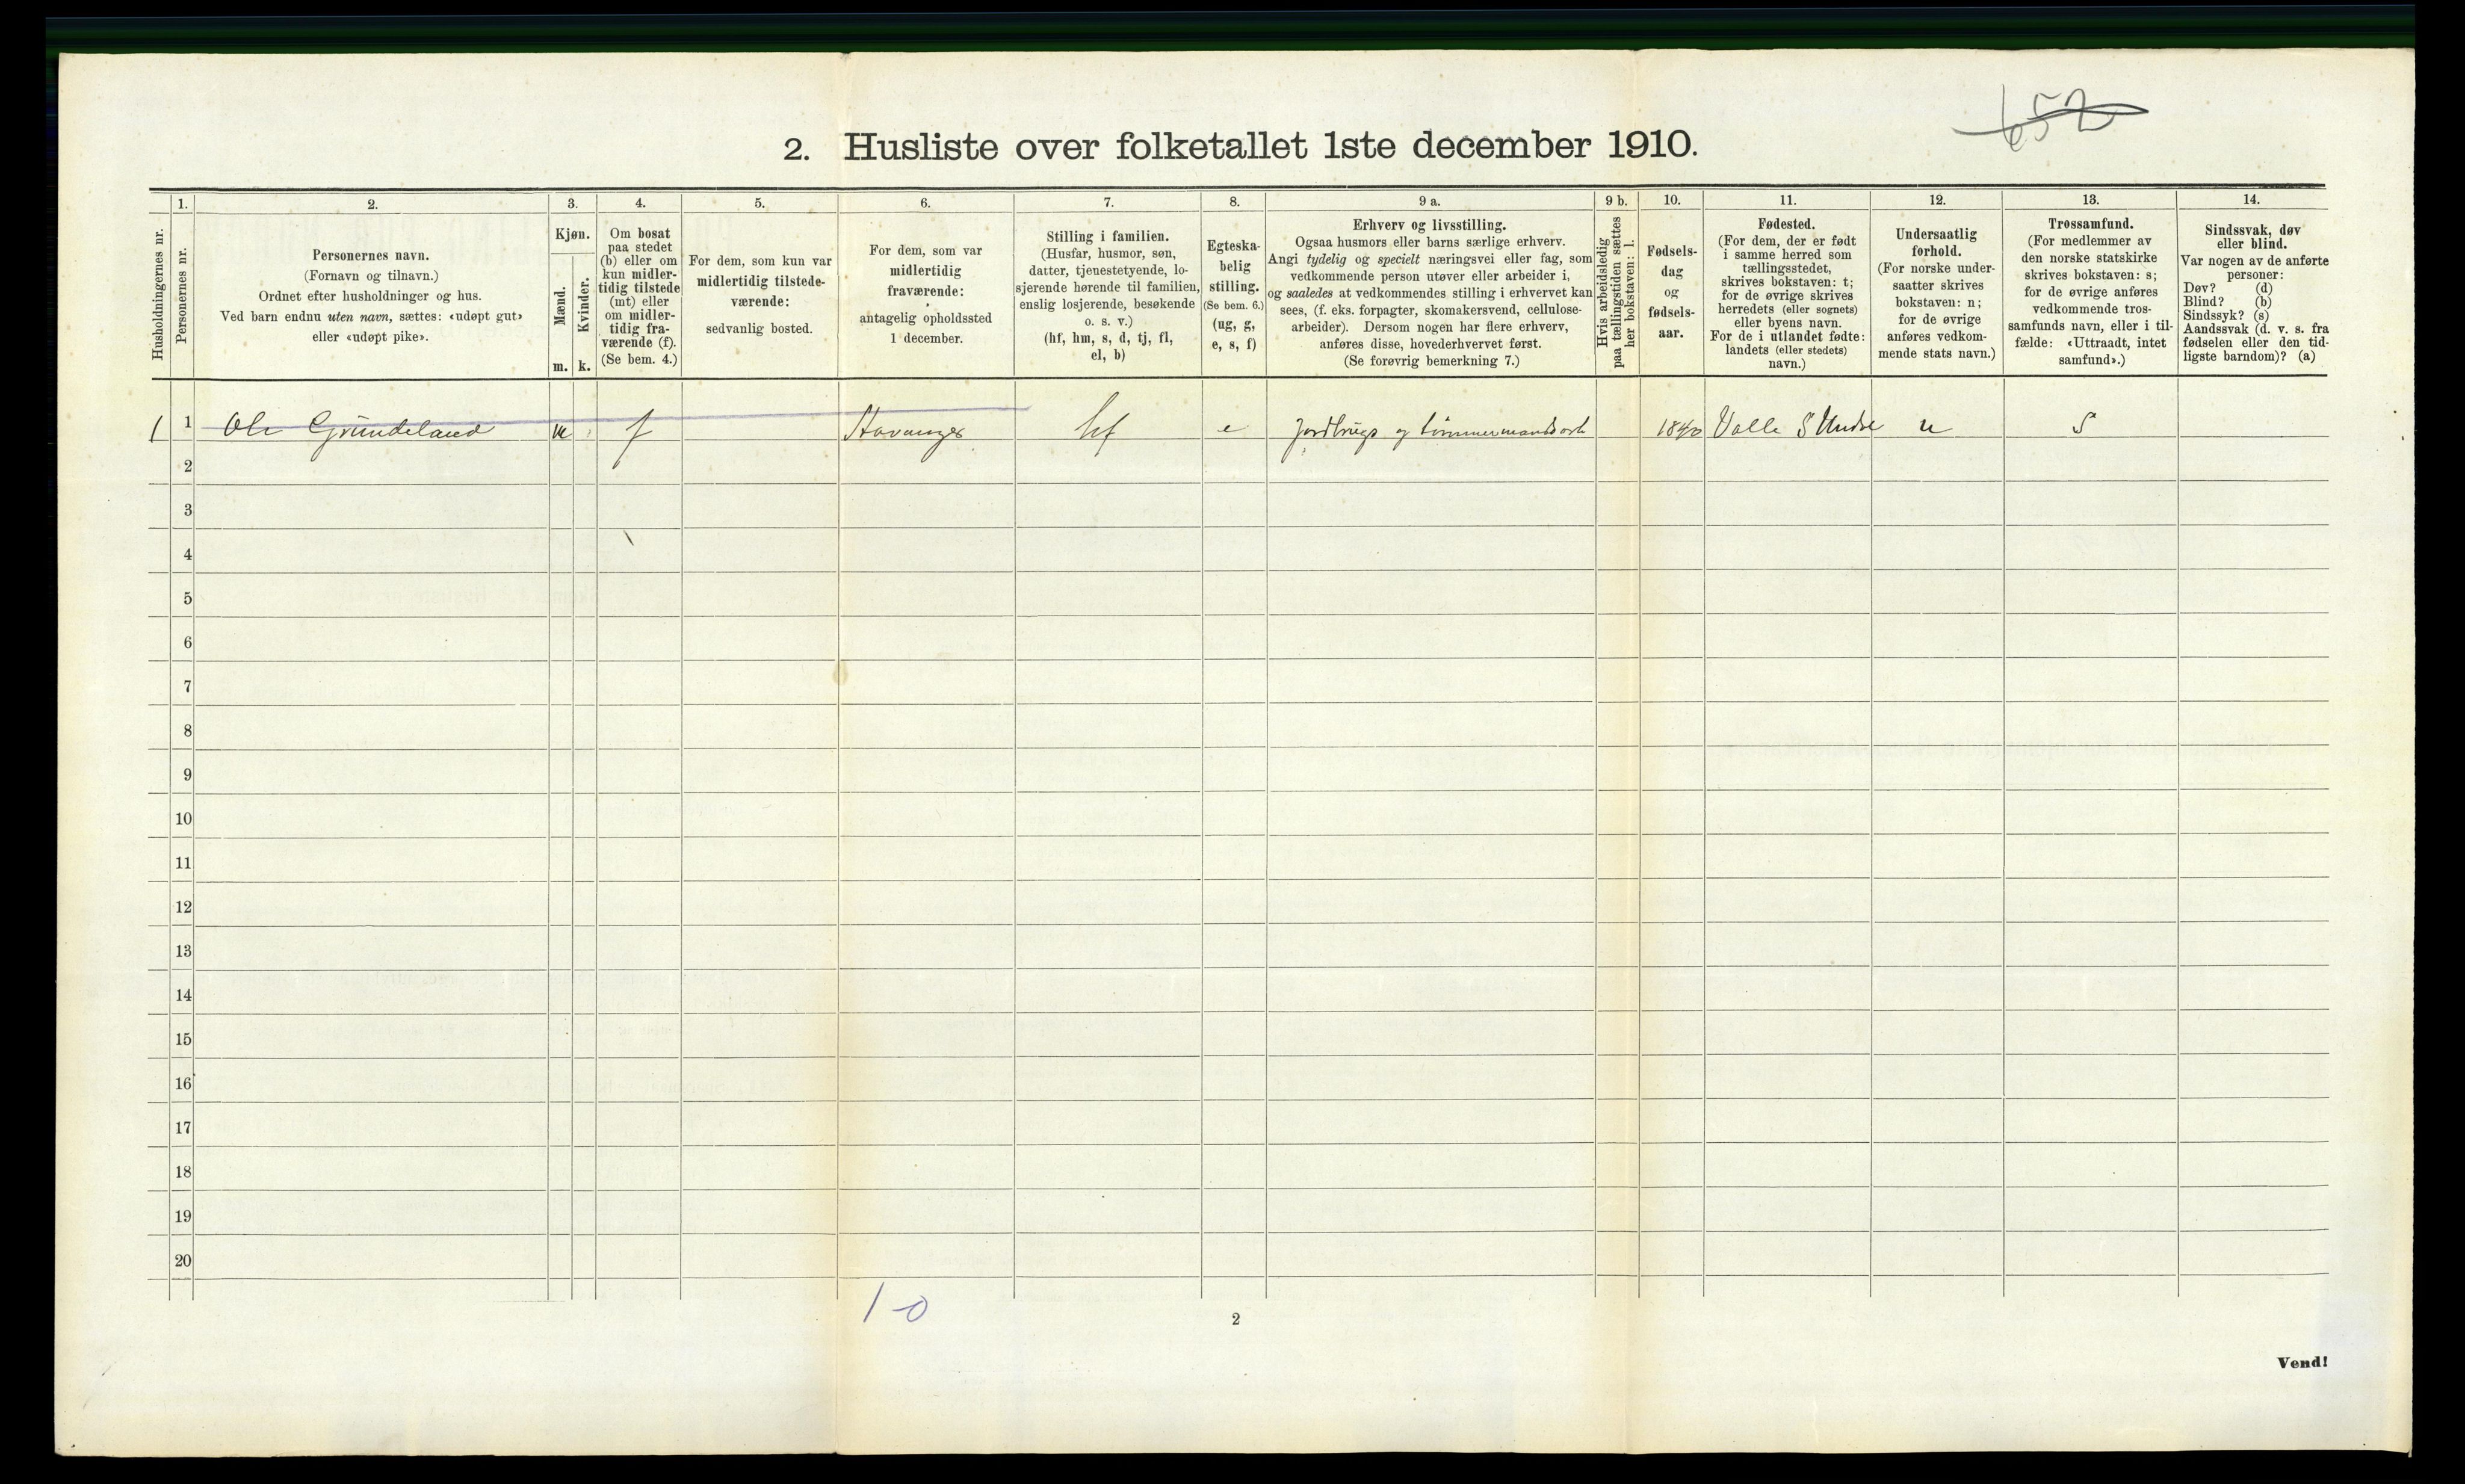 652
2. Husliste over folketallet 1ste december 1910.
Husholdningernes nr.
1.
Personernes nr.
2.
Personernes navn.
(Fornavn og tilnavn.)
Ordnet efter husholdninger og hus.
Ved barn endnu uten navn, sættes: «udøpt gut»
eller «udøpt pike».
3.
Kjøn.
Mænd.
Kvinder.
m.
k.
4.
Om bosat
paa stedet
(b) eller om
kun midler-
tidig tilstede
(mt) eller
om midler-
tidig fra-
værende (f).
(Se bem. 4.)
5.
For dem, som kun var
midlertidig tilstede-
værende:
sedvanlig bosted.
6.
For dem, som var
midlertidig
fraværende:
antagelig opholdssted
1 december.
7.
Stilling i familien.
(Husfar, husmor, søn,
datter, tjenestetyende, lo-
sjerende hørende til familien,
enslig losjerende, besøkende
o. s. v.)
(hf, hm, s, d, tj, fl,
el, b)
8.
Egteska-
belig
stilling.
(Se bem. 6.)
(ug, g,
e, s, f)
9 a.
Erhverv og livsstilling.
Ogsaa husmors eller barns særlige erhverv.
Angi tydelig og specielt næringsvei eller fag, som
vedkommende person utøver eller arbeider i,
og saaledes at vedkommendes stilling i erhvervet kan
sees, (f. eks. forpagter, skomakersvend, cellulose-
arbeider). Dersom nogen har flere erhverv,
anføres disse, hovederhvervet først.
(Se forøvrig bemerkning 7.)
9 b.
Hvis arbeidsledig
paa tællingstiden sættes
her bokstaven: l.
10.
Fødsels-
dag
og
fødsels-
aar.
11.
Fødested.
(For dem, der er født
i samme herred som
tællingsstedet,
skrives bokstaven: t;
for de øvrige skrives
herredets (eller sognets)
eller byens navn.
For de i utlandet fødte:
landets (eller stedets)
navn.)
12.
Undersaatlig
forhold.
(For norske under-
saatter skrives
bokstaven: n;
for de øvrige
anføres vedkom-
mende stats navn.)
13.
Trossamfund.
(For medlemmer av
den norske statskirke
skrives bokstaven: s;
for de øvrige anføres
vedkommende tros-
samfunds navn, eller i til-
fælde: «Uttraadt, intet
samfund».)
14.
Sindssvak, døv
eller blind.
Var nogen av de anførte
personer:
Døv? (d)
Blind? (b)
Sindssyk? (s)
Aandssvak (d. v. s. fra
fødselen eller den tid-
ligste barndom)? (a)
1 1 Ole Grundeland m f Stavanger hf e Jordbrugs og tømmermandsarb 1840 Valle S n S
2
3
4
5
6
7
8
9
10
11
12
13
14
15
16
17
18
19
20
1-0
2
Vend!